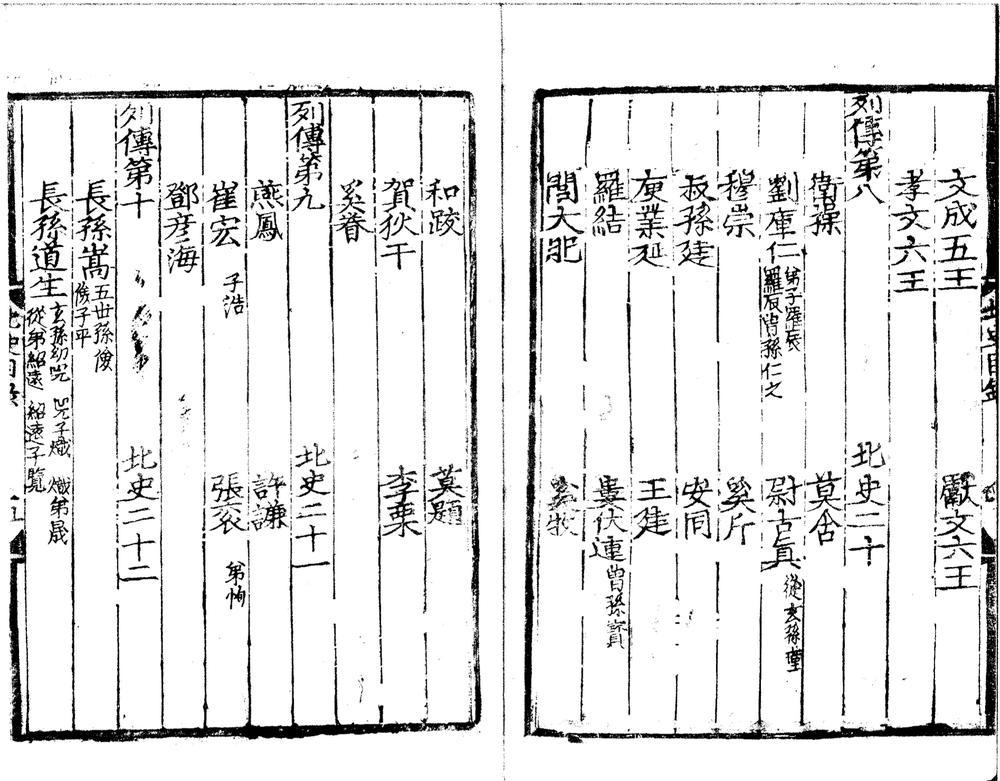 文成五王 獻文六王
孝文六王
列傳第八 北史二十
衛操 莫含
劉庫仁 弟子羅辰 羅辰曾孫仁之 尉古真 從玄孫瑾
穆崇 奚斤
叔孫建 安同
庾業延 王建
羅結 婁伏連 曾孫寶
閭大肥 奚牧
和跋 莫題
賀狄干 李栗
奚眷
列傳第九 北史二十一
燕鳳 許謙
崔宏 子浩 張袞 弟恂
鄧彦海
列傳第十 北史二十二
長孫嵩 五世孫儉 儉子平
長孫道生 玄孫幼 兕子熾 熾弟晟 從弟紹遠 紹遠子覽
北史目錄
五